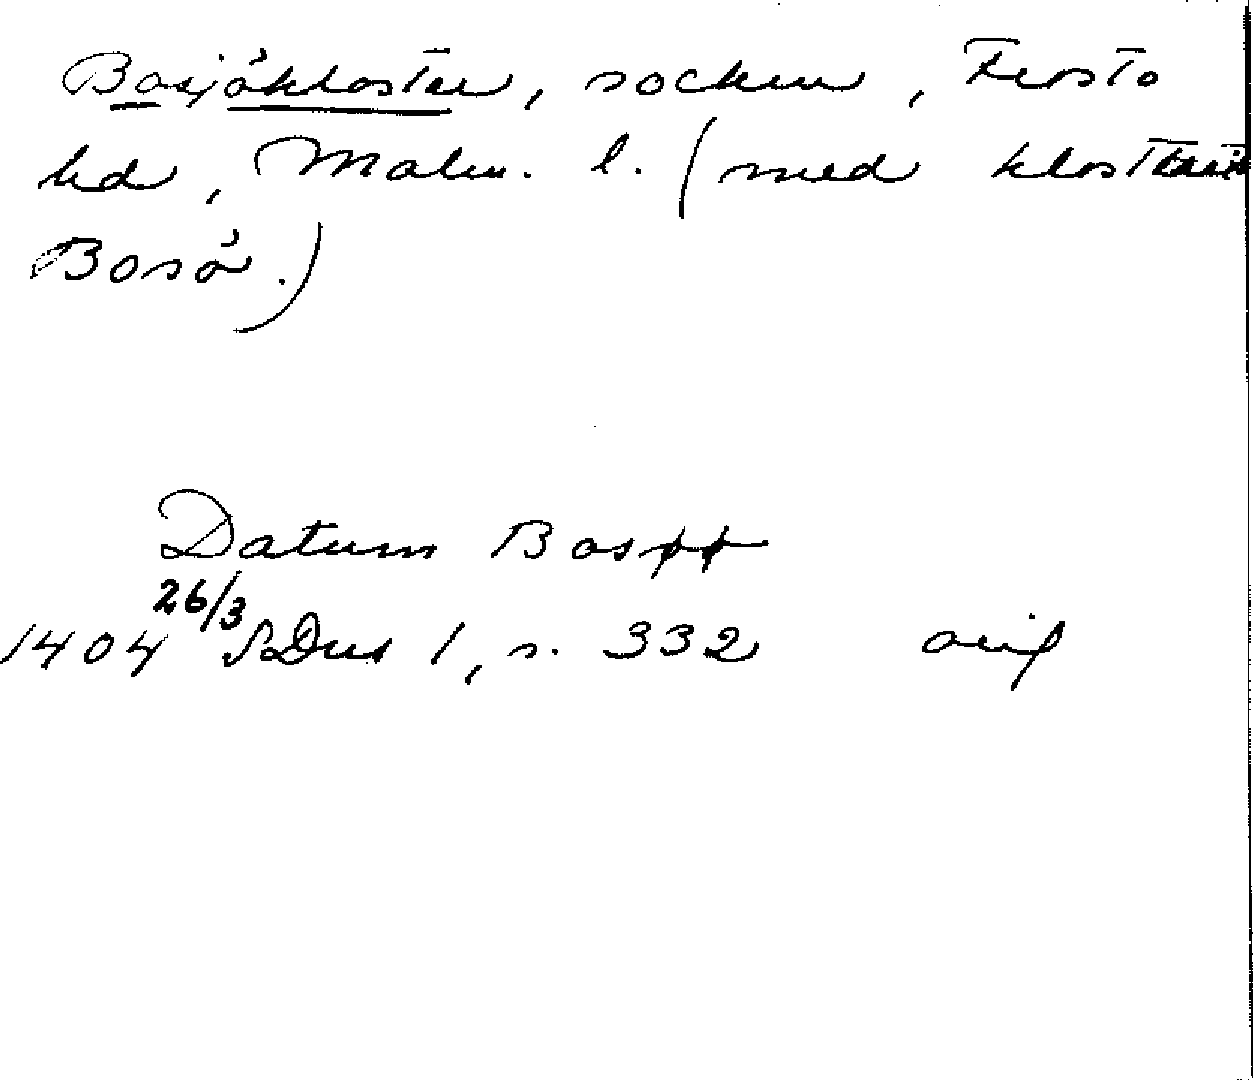 Bosjökloster, socken, Frosta
hd, Malm. l. (med kloster
Bosö.)
Datum Bosøø
26/3
1404 SDns 1, s. 332 orig